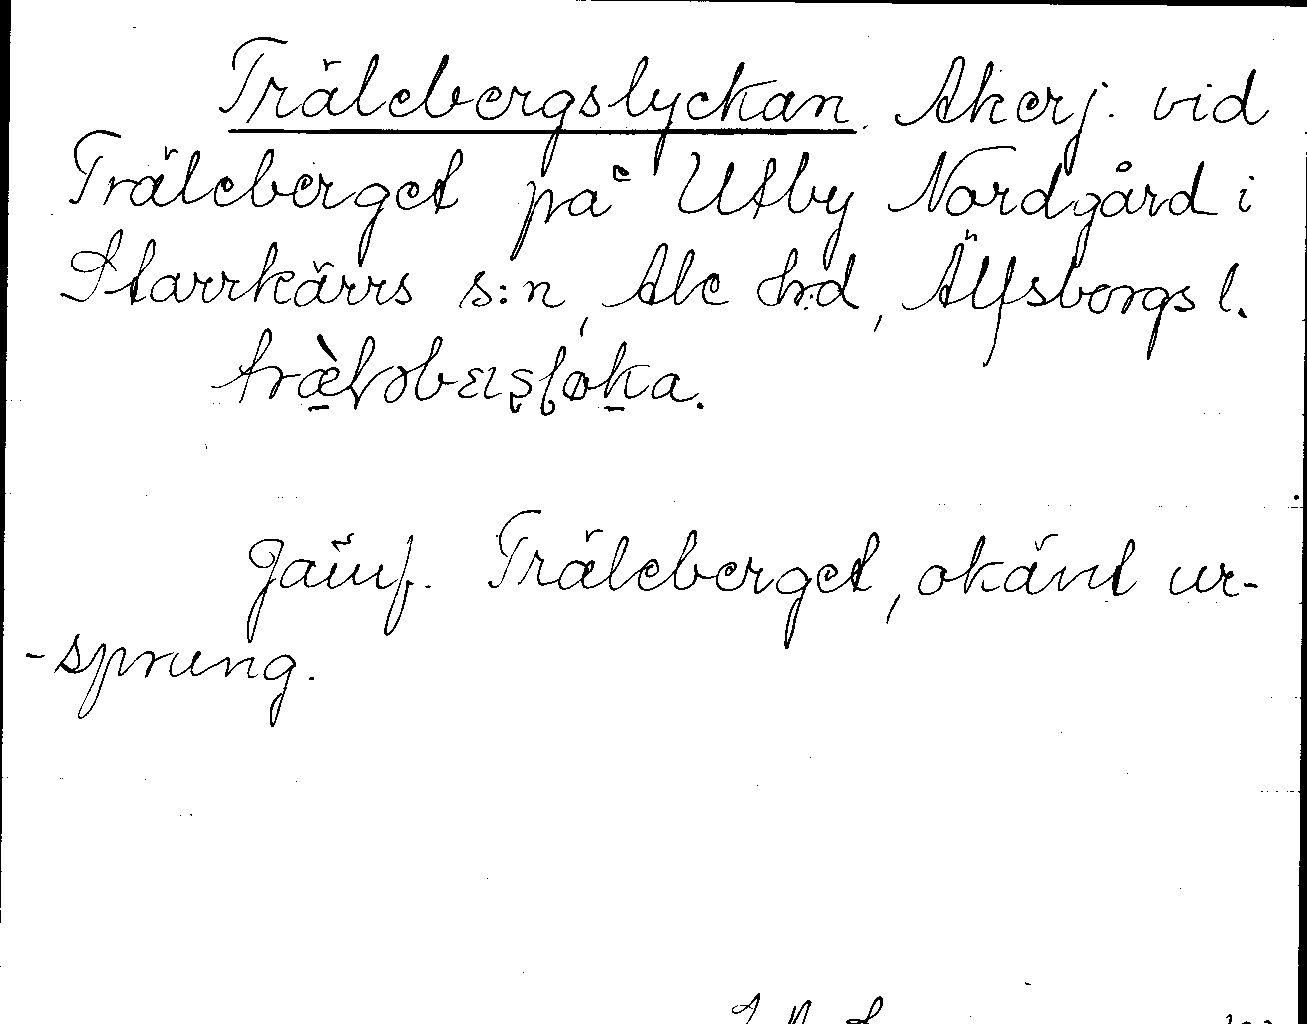 Trälebergslyckan. Åkerj. vid
Träleberget på Utby Nordgård i
Starrkärrs s:n, Ale hd, Älfsborgs l.
Jämf. Träleberget, okänt ur-
-sprung.